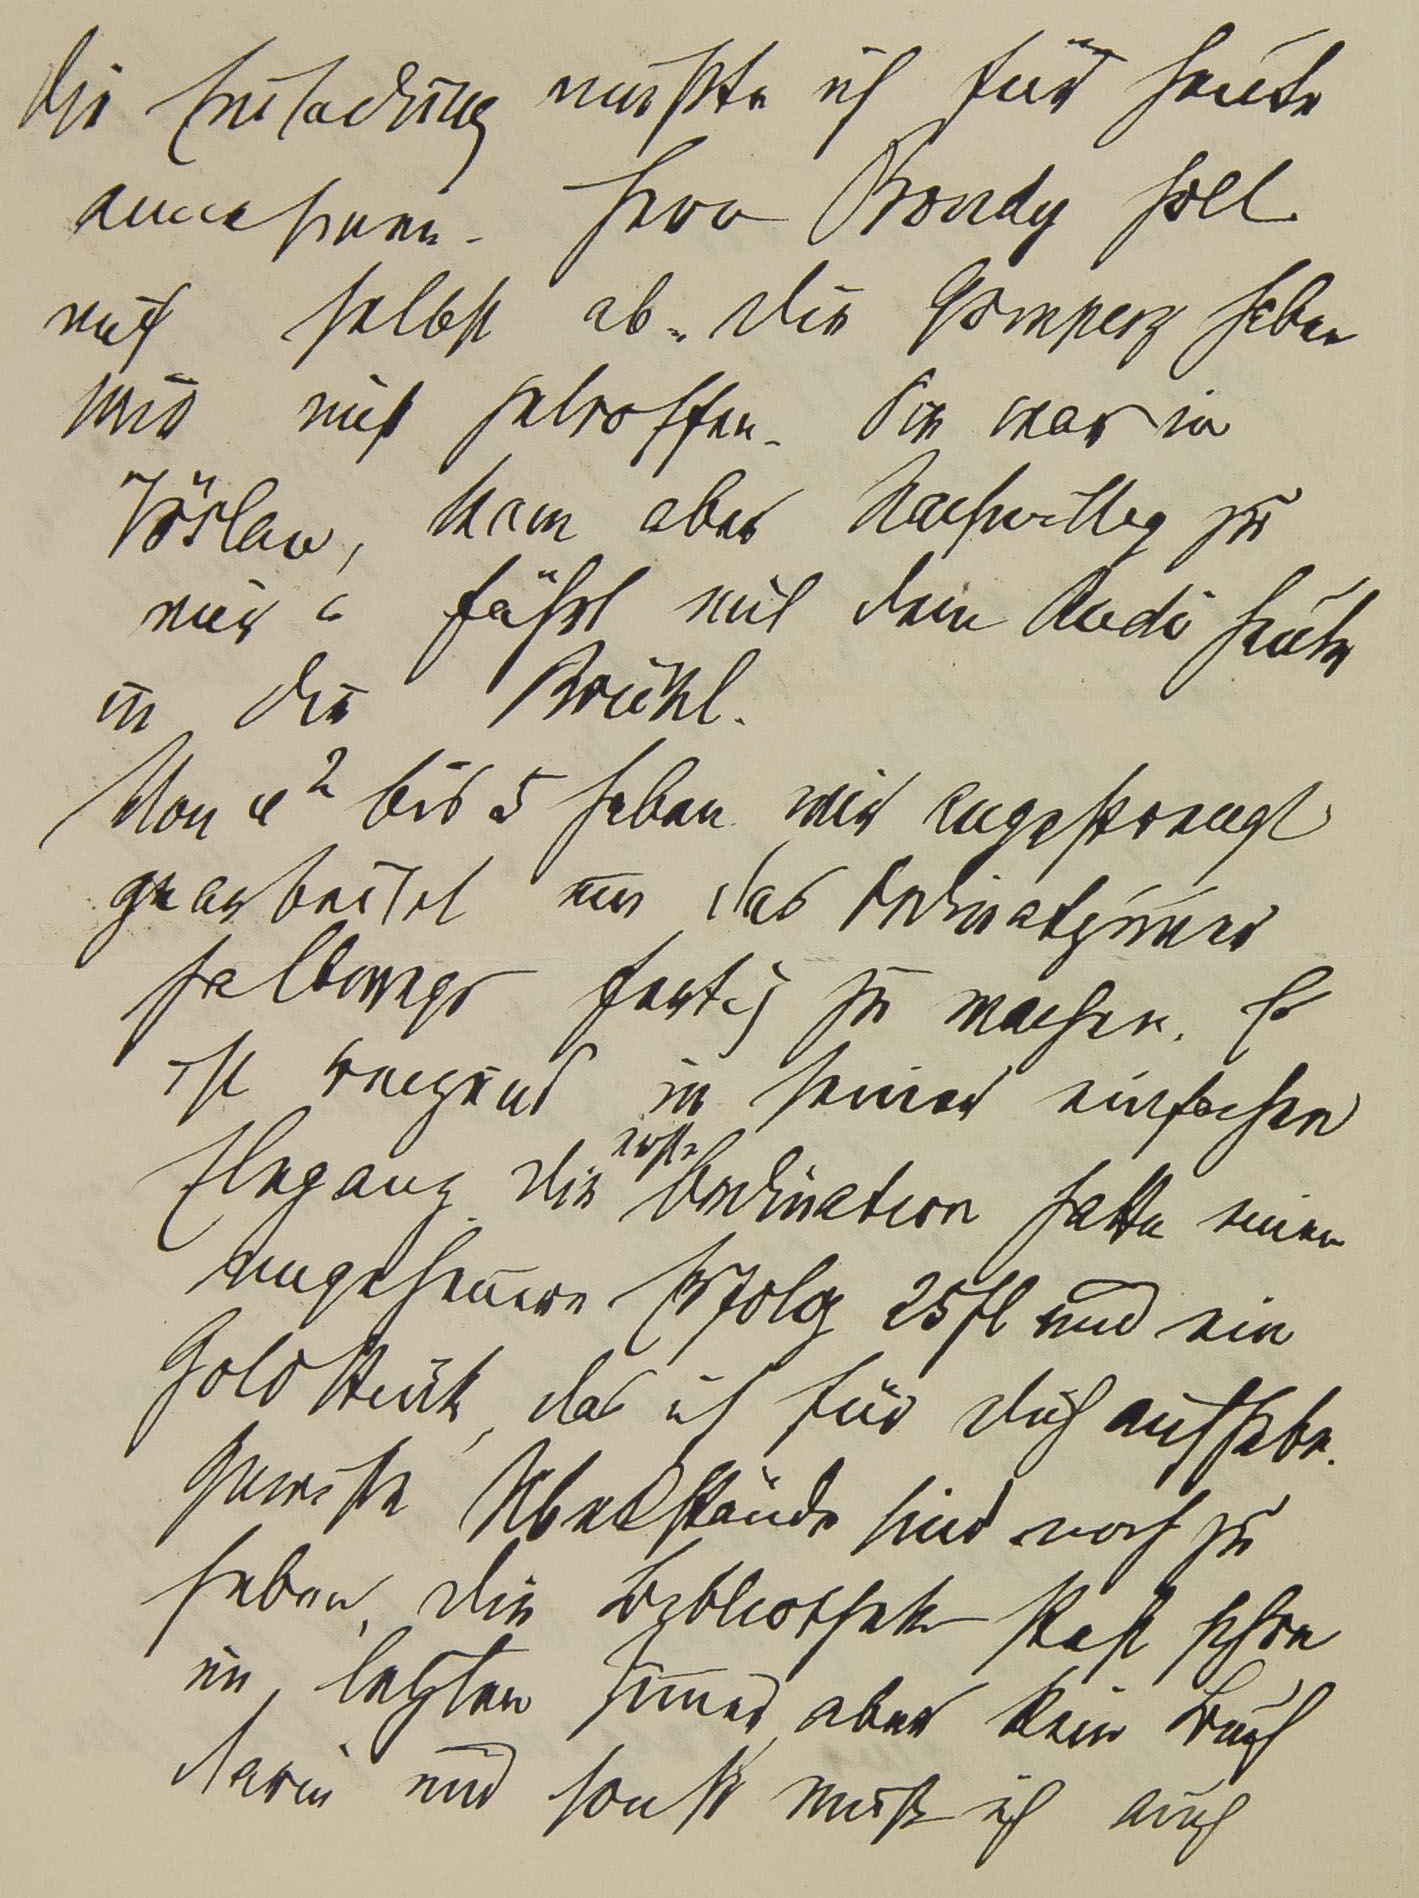 die Einladung mußte ich für heute
annehmen. Herr Bondy holt
mich selbst ab. Die Gomperz haben
wir nicht getroffen. Sie war in
Vöslau, kam aber Nachmittag zu
mir u fährt mit dem Rudi heute
in die Brühl.
Von 2 bis 5 haben wir angestrengt
gearbeitet um das Ordinatzimmer
halbwegs fertig zu machen. Es
ist reizend in seiner einfachen
Eleganz. Die erste Ordination hatte einen
ungeheuern Erfolg 25 fl und ein
Goldstück, das ich für dich aufhebe.
Gewisse Übelstände sind noch zu
heben, die Bibliothek steht schon
im letzten Zimmer, aber kein Buch
darin und sonst muß ich auch